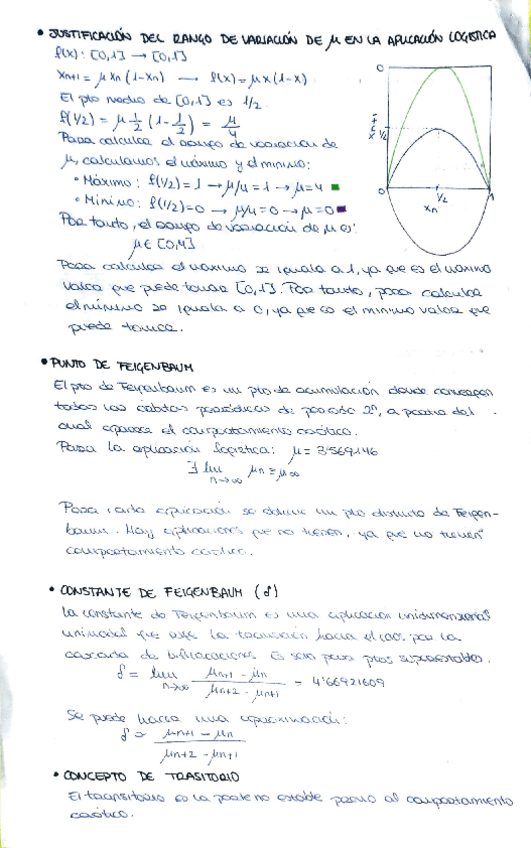 • JUSTIFICACIÓN DEL RANGO DE VARIACIÓN DE μ EN LA APLICACIÓN LOGISTICA
f(x): [0,1] → [0,1]
Xn+1 = μ Xn (1-Xn) → f(x) = μ x (1-x)
El pto medio de [0,1] es 1/2
f(1/2) = μ 1/2 (1 - 1/2) = μ/4
Para calcular el rango de variación de
μ, calculamos el máximo y el mínimo:
• Máximo: f(1/2) = 1 → μ/4 = 1 → μ = 4
• Mínimo: f(1/2) = 0 → μ/4 = 0 → μ = 0
Por tanto, el rango de variación de μ es:
μ ∈ [0,4]
0
Xn+1
1/2
0
1/2
1
Xn
Para calcular el máximo se iguala a 1, ya que es el máximo
valor que puede tomar [0,1]. Por tanto, para calcular
el mínimo se iguala a 0, ya que es el mínimo valor que
puede tomar.
• PUNTO DE FEIGENBAUM
El pto de Feigenbaum es un pto de acumulación donde convergen
todas las órbitas periódicas de periodo 2ⁿ, a partir del
cual aparece el comportamiento caótico.
Para la aplicación logística: μ = 3'569946
∃ lim n→∞ μn = μ∞
Para cada aplicación se obtiene un pto distinto de Feigen-
baum. Hay aplicaciones que no tienen, ya que no tienen
comportamiento caótico.
• CONSTANTE DE FEIGENBAUM (δ)
La constante de Feigenbaum es una aplicación unidimensional
unimodal que exige la transición hacia el caos por la
cascada de bifurcaciones. Es solo para ptos superestables.
δ = lim n→∞ μn+1 - μn / μn+2 - μn+1 = 4'66921609
Se puede hacer una aproximación:
δ ≃ μn+1 - μn / μn+2 - μn+1
• CONCEPTO DE TRASITORIO
El transitorio es la parte no estable previo al comportamiento
caótico.